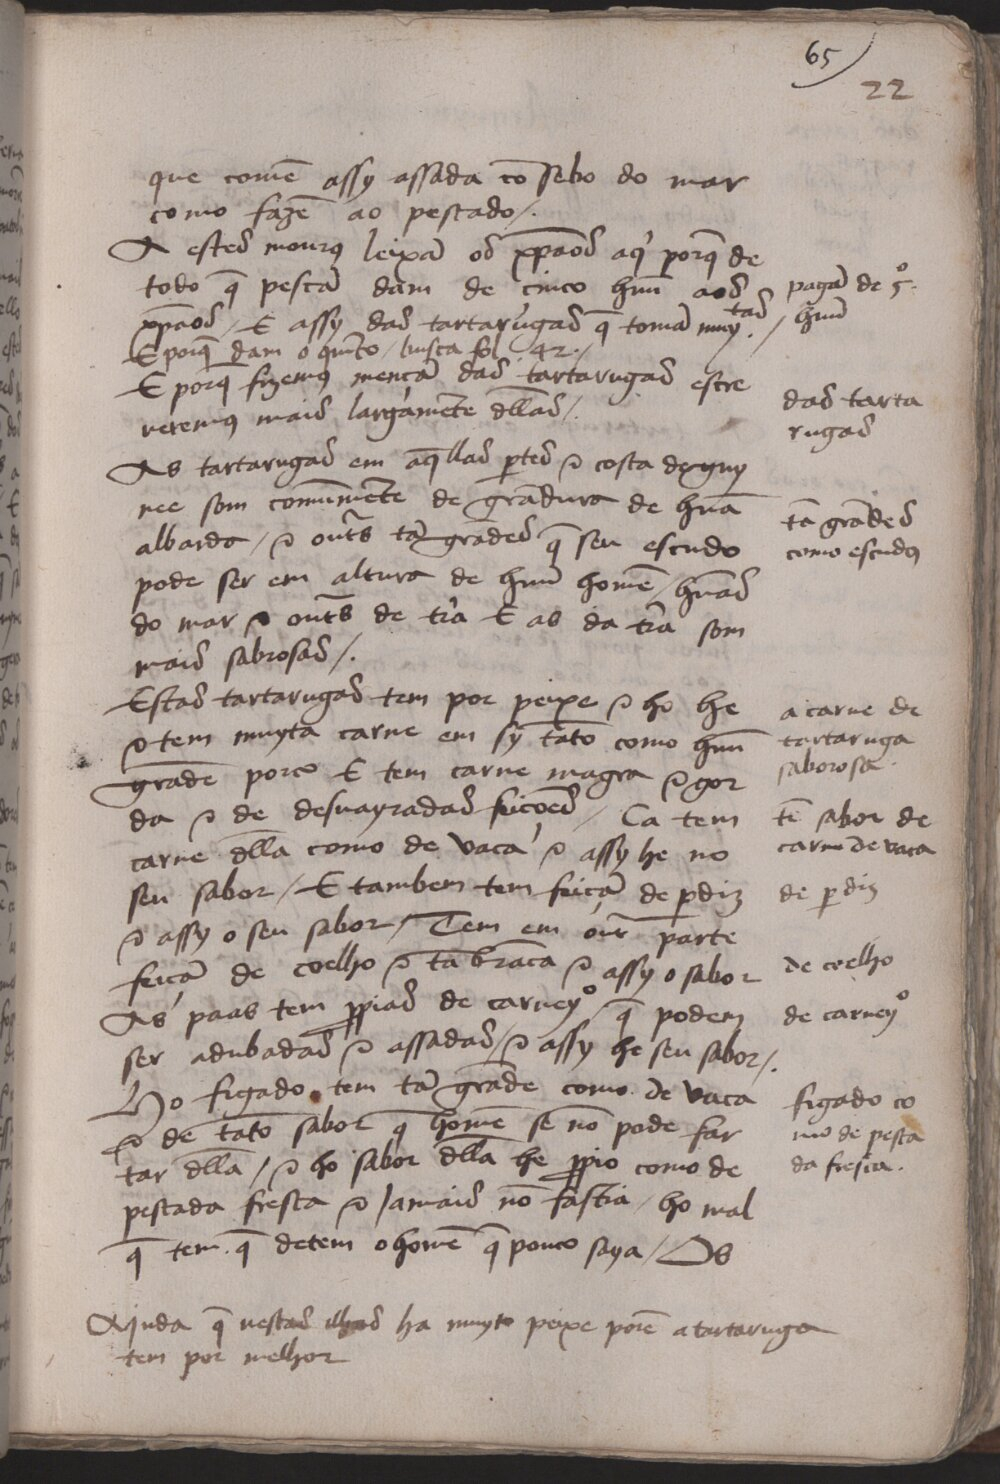 65
22
que comẽ assy assada cõ sebo do mar
como fazẽ ao pescado /.
A estes mouros leixã os xp̃aos aq̃ porq̃ de
todo q̃ pescã dam de cinco huũ aos
xp̃aos / E assy das tartarugas q̃ tomã muytas /.
E porq̃ dam o quinto / busca fol 42 ·/
E porq̃ fizemos mençã das tartarugas escre
veremos mais largamẽte dllas /.
As tartarugas em aq̃llas p̱tes ⁊ costa de guy
nee som comũmẽte de grãdura de huã
albarda / ⁊ outs̃ tã grãdes q̃ seu escudo
pode ser em altura de huũ homẽ / huãs
do mar ⁊ outs̃ de tr̃a E as da tr̃a som
mais sabrosas /.
Estas tartarugas tem por peixe ⁊ ho he
⁊ tem muyta carne em sy tãto como huũ
grãde porco E tem carne magra ⁊ gor
da ⁊ de desuayradas feições / Ca tem
carne dlla como de vaca ⁊ assy he no
seu sabor / E tambem tem feiçã de p̱diz
⁊ assy o seu sabor / Tem em outr̃ parte
feiçã de coelho ⁊ tã brãca ⁊ assy o sabor
As paas tem p̱pias de carneyº q̃ podem
ser adubadas ⁊ assadas / ⁊ assy he seu sabor /.
Ho figado tem tã grãde como de vaca
⁊ de tãto sabor q̃ homẽ se nõ pode far
tar dlla / ⁊ ho sabor dlla he p̱pio como de
pescada fresca ⁊ Jamais nõ fastia / ho mal
q̃ tem q̃ detem o homẽ q̃ pouco saya / Os
Ajnda q̃ nestas ilhas ha muyto peixe porẽ a tartaruga
tem por melhor
pagã de 5º
huũ
das tarta
rugas
tã grãdes
como escudos
a carne de
tartaruga
saborosa .
tẽ sabor de
carne de vaca
de p̱diz
de coelho
de carneyº
figado co
mo de pesca
da fresca .